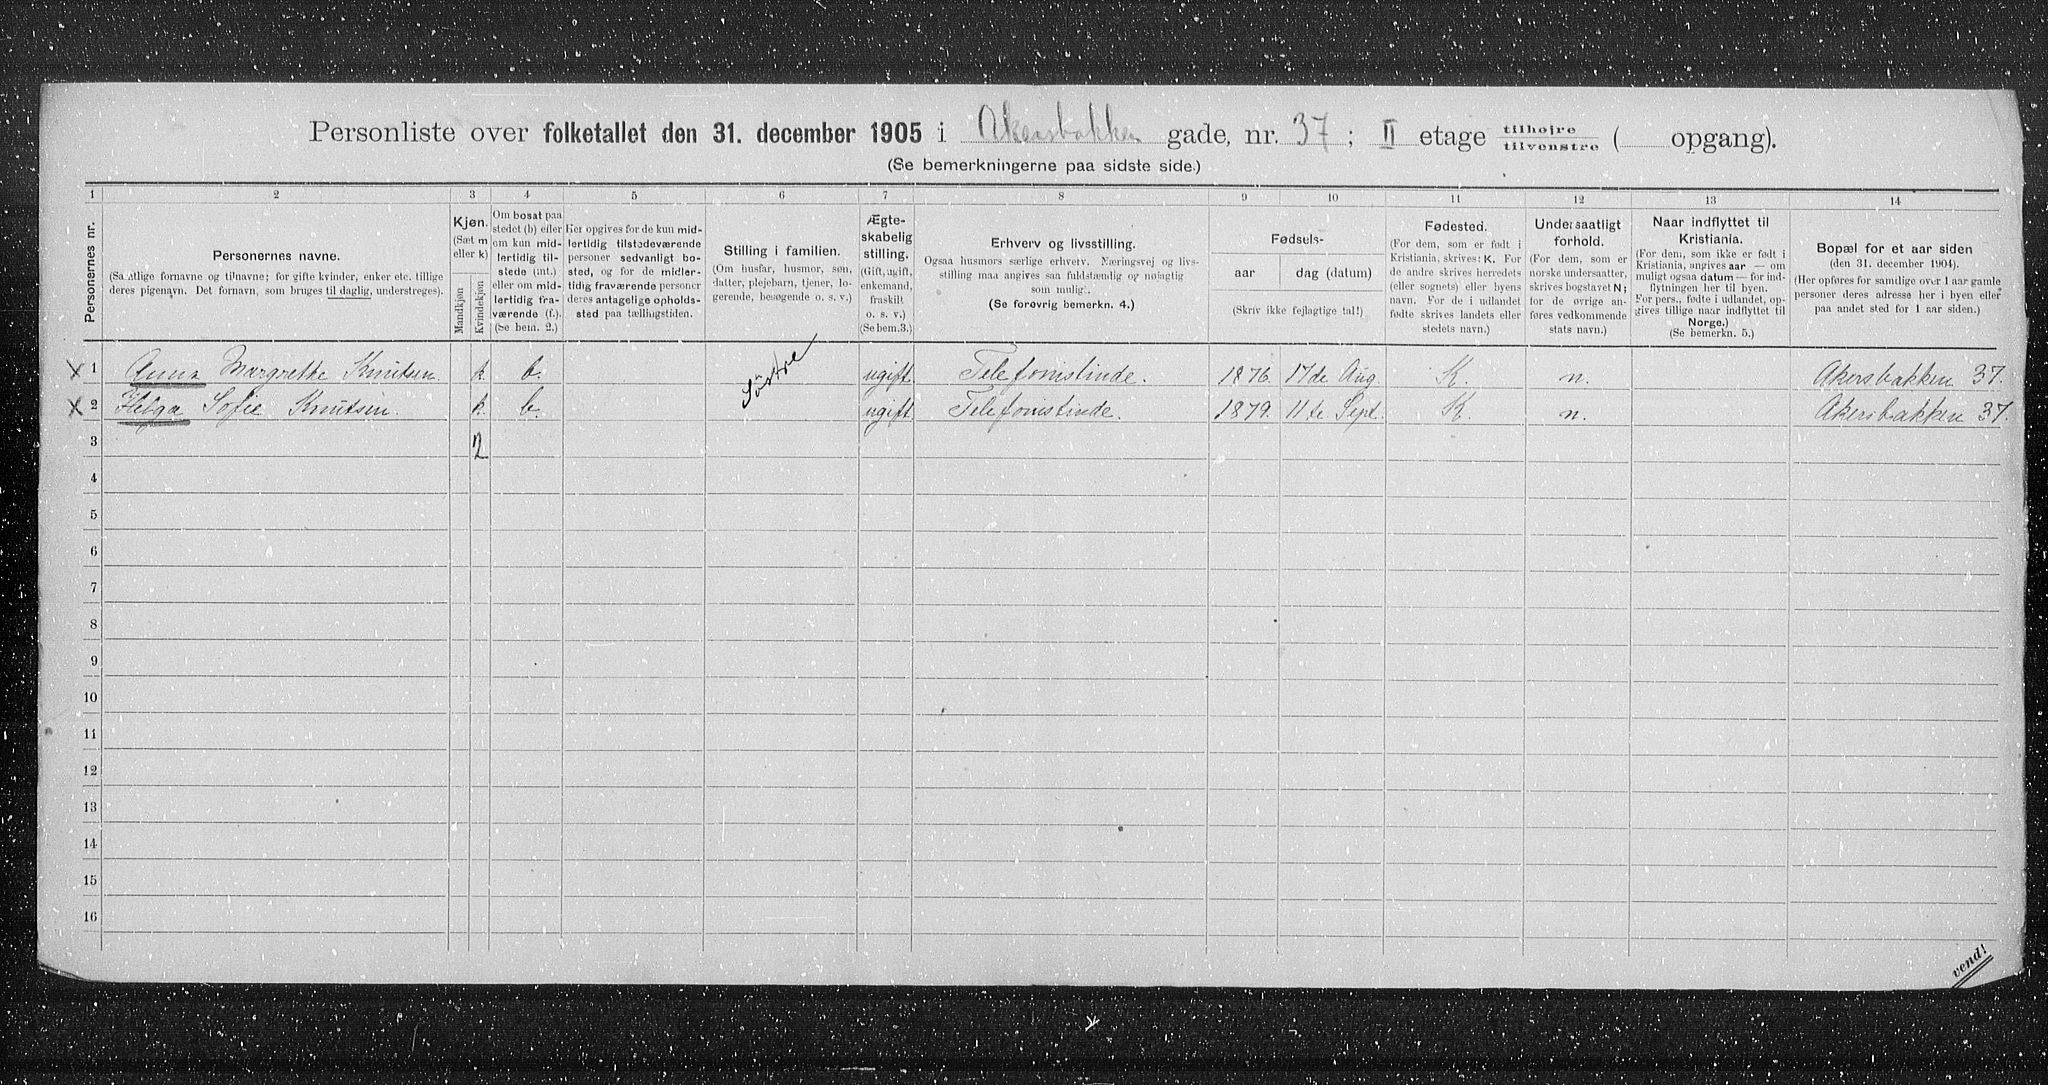 Personliste over folketallet den 31. december 1905 i Akersbakken gade, nr. 37; II etage tilhøjre tilvenstre ( opgang).
(Se bemerkningerne paa sidste side.)
1 2 3 4 5 6 7 8 9 10 11 12 13 14
Personernes nr.
Personernes navne.
(Samtlige fornavne og tilnavne; for gifte kvinder, enker etc. tillige deres pigenavn. Det fornavn, som bruges til daglig, understreges).
Kjøn.
(Sæt m eller k)
Mandkjøn
Kvindekjøn
Om bosat paa stedet (b) eller om kun midlertidig tilstede (mt.) eller om midlertidig fraværende (f.) (Se bem. 2.)
Her opgives for de kun midlertidig tilstedeværende personer sedvanligt bosted, og for de midlertidig fraværende personer deres antagelige opholdssted paa tællingstiden.
Stilling i familien.
(Om husfar, husmor, søn, datter, plejebarn, tjener, logerende, besøgende o. s. v.)
Ægteskabelig stilling.
(Gift, ugift, enkemand, fraskilt o. s. v.) (Se bem.3.)
Erhverv og livsstilling.
Ogsaa husmors særlige erhverv. Næringsvej og livsstilling maa angives saa fuldstændig og nøiagtig som mulig.
(Se forøvrig bemerkn. 4.)
Fødsels-
aar dag (datum)
(Skriv ikke fejlagtige tal!)
Fødested.
(For dem, som er født i Kristiania, skrives: K. For de andre skrives herredets (eller sognets) eller byens navn. For de i udlandet fødte skrives landets eller stedets navn.)
Undersaatligt forhold.
(For dem, som er norske undersaatter, skrives bogstavet N; for de øvrige anføres vedkommende stats navn.)
Naar indflyttet til Kristiania.
(For dem, som ikke er født i Kristiania, angives aar — om muligt ogsaa datum — for indflytningen her til byen. For pers., fødte i udlandet, opgives tillige naar indflyttet til Norge.)
(Se bemerkn. 5.)
Bopæl for et aar siden
(den 31. december 1904).
(Her opføres for samtlige over 1 aar gamle personer deres adresse her i byen eller paa andet sted for 1 aar siden.)
X 1 Anna Margrethe Knutsen. k. b. Söstre ugift Telefonistinde. 1876. 17de Aug. K. n. Akersbakken 37.
X 2 Helga Sofie Knutsen. k. b. ugift Telefonistinde. 1879. 11te Sept. K. n. Akersbakken 37.
3 2
4
5
6
7
8
9
10
11
12
13
14
15
16
vend!